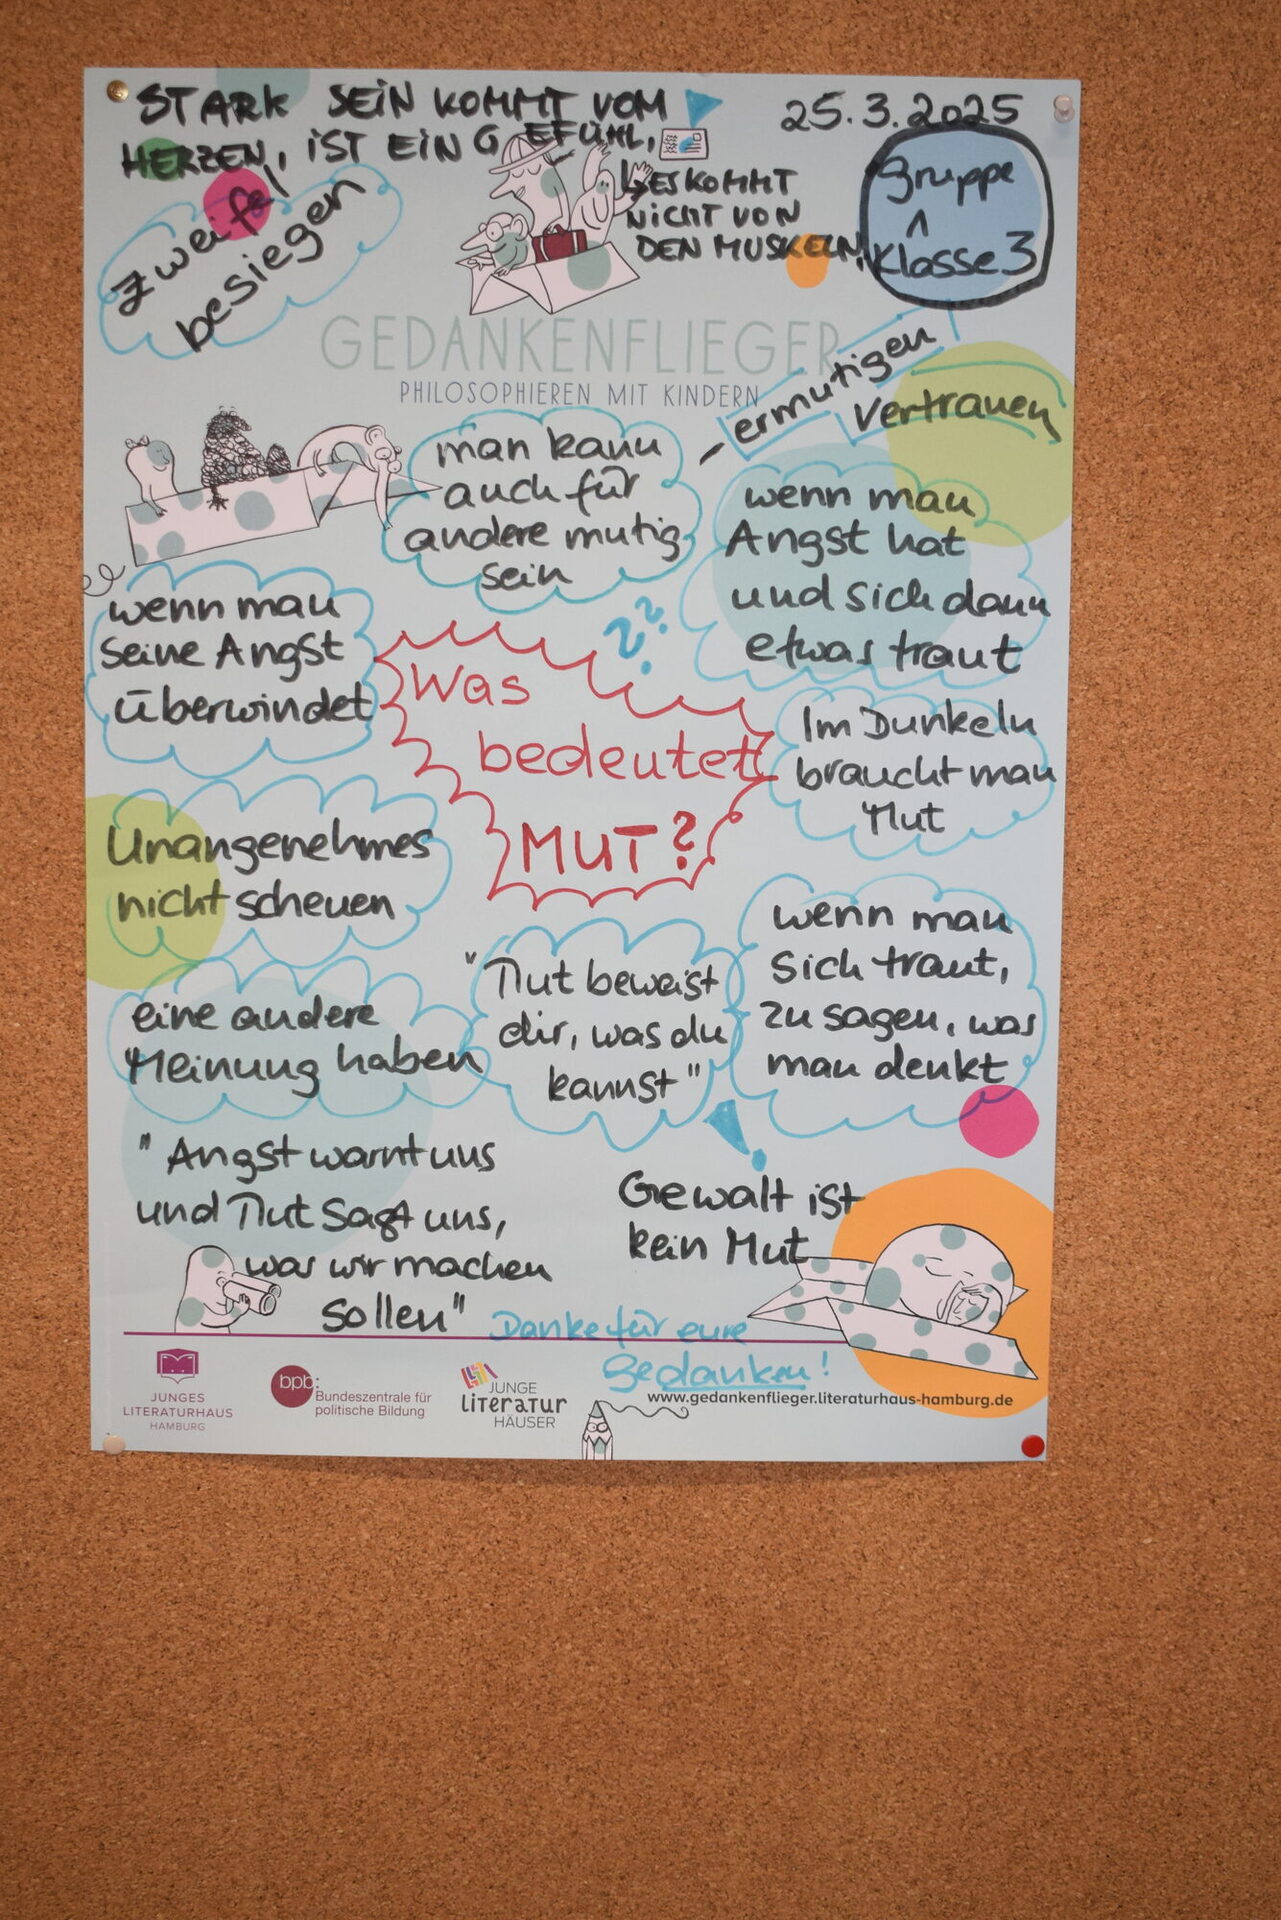 STARK SEIN KOMMT VOM
HERZEN, IST EIN GEFÜHL,
ES KOMMT
NICHT VON
DEN MUSKELN!
25.3.2025
Gruppe
1
Klasse 3
Zweifel
besiegen
GEDANKENFLIEGER
PHILOSOPHIEREN MIT KINDERN
ermutigen
Vertrauen
man kann
auch für
andere mutig
sein
wenn man
Angst hat
und sich dann
etwas traut
wenn man
seine Angst
überwindet
??
Was
bedeutet
MUT?
Im Dunkeln
braucht man
Mut
Unangenehmes
nicht scheuen
wenn man
sich traut,
zu sagen, was
man denkt
eine andere
Meinung haben
"Mut beweist
dir, was du
kannst"
!
"Angst warnt uns
und Mut sagt uns,
was wir machen
sollen"
Gewalt ist
kein Mut
Danke für eure
Gedanken!
JUNGES
LITERATURHAUS
HAMBURG
bpb:
Bundeszentrale für
politische Bildung
JUNGE
LITERATUR
HÄUSER
www.gedankenflieger.literaturhaus-hamburg.de